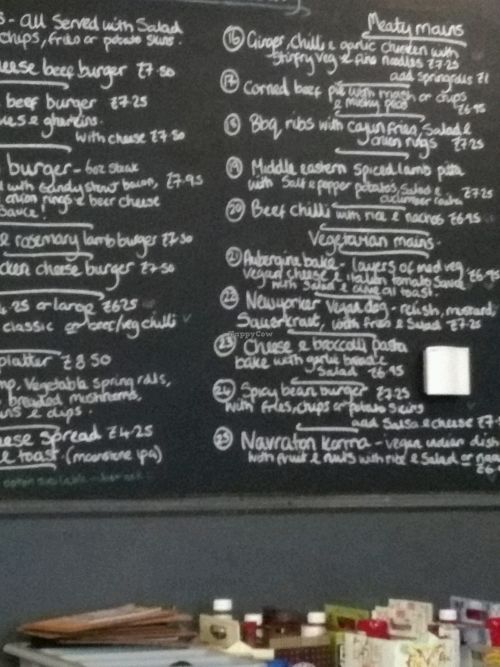 s - all served with Salad
chips, fries or potato skins.
eese beef burger £7.50
beef burger £7.25
with cheese £7.50
burger - 6oz steak
with Gandy shout bacon, £7.95
onion rings & beer cheese
Sauce!
& rosemary lamb burger £7.50
cken cheese burger £7.50
4.25 or large £6.25
classic or beer/veg chilli
platter £8.50
mp, Vegetable spring rolls,
breaded mushrooms,
ins & dips.
ese spread £4.25
e toast. (moonstone ipa)
Meaty mains
16 Ginger, chilli & garlic chicken with
stirfry veg & fine noodles £7.25
add springrolls £1
17 Corned beef pie with mash or chips
& mushy peas £6.95
18 Bbq ribs with cajun fries, Salad &
onion rings £7.25
19 Middle eastern spiced lamb pitta
with salt & pepper potatos, Salad & £7.25
cucumber raita
20 Beef chilli with rice & nachos £6.95
Vegetarian mains.
21 Aubergine bake - layers of med veg
Vegan cheese & italian tomato Sauce £6.95
with Salad & olive oil toast.
22 Newyorker Vegan dog - relish, mustard,
Sauerkraut, with fries & Salad £7.25
23 Cheese & broccoli pasta
bake with garlic bread &
Salad £6.95
24 Spicy bean burger £7.25
with fries, chips or potato skins
add Salsa & cheese £7.
25 Navratan korma - vegan indian dish
with fruit & nuts with rice & Salad or naan
HappyCow